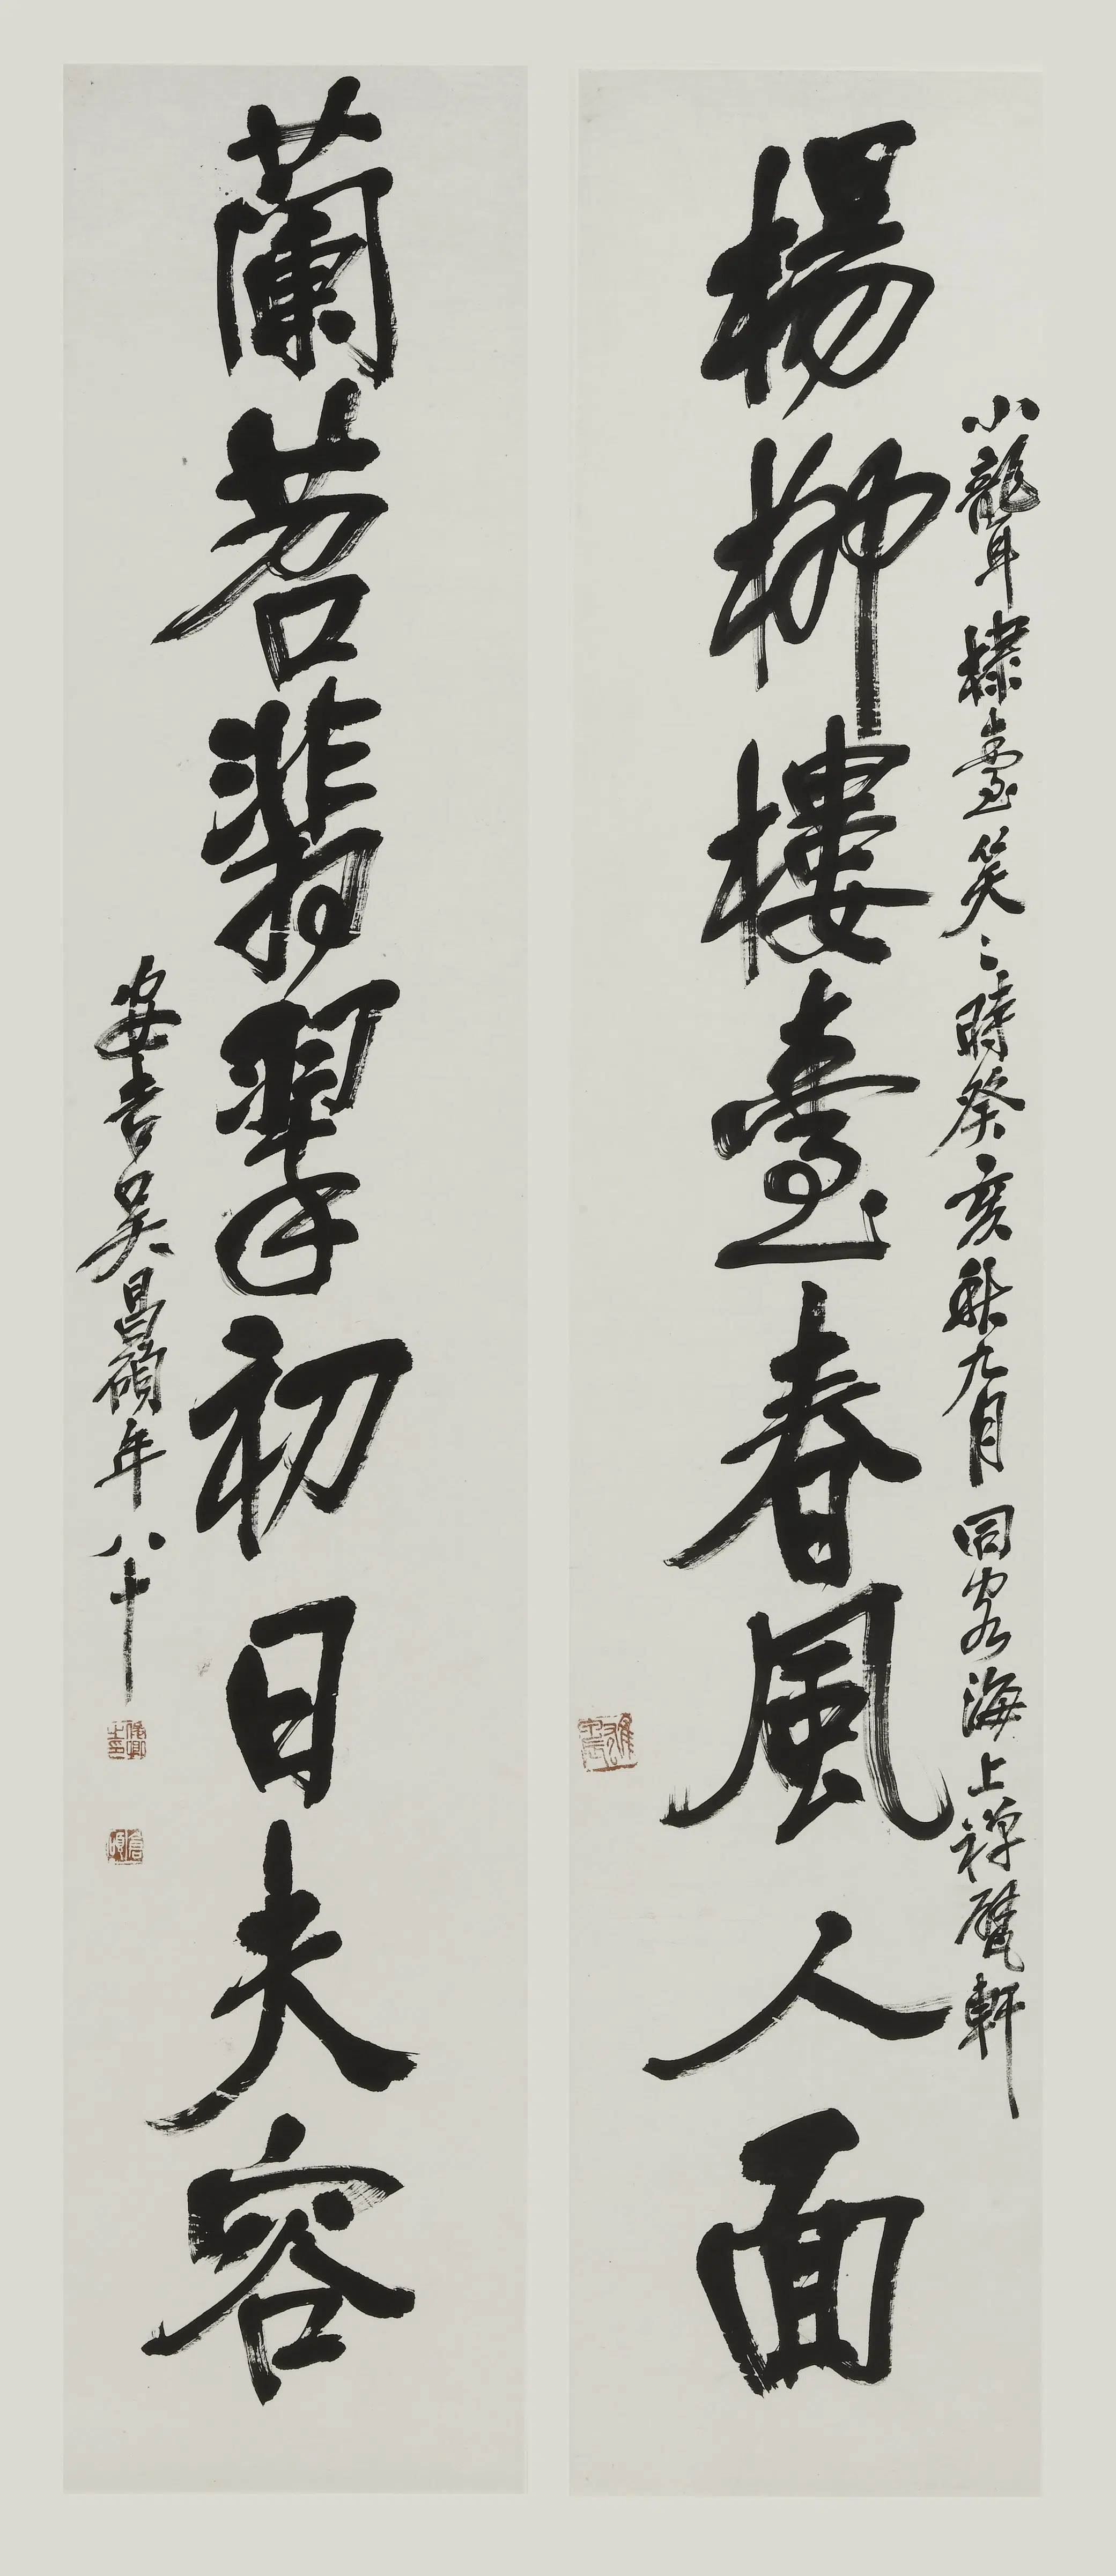 楊柳樓臺春風人面
小聾耳棣臺笑笑時癸亥秋九月同客海上禪甓軒
蘭苕翡翠初日夫容
安吉吴昌碩年八十